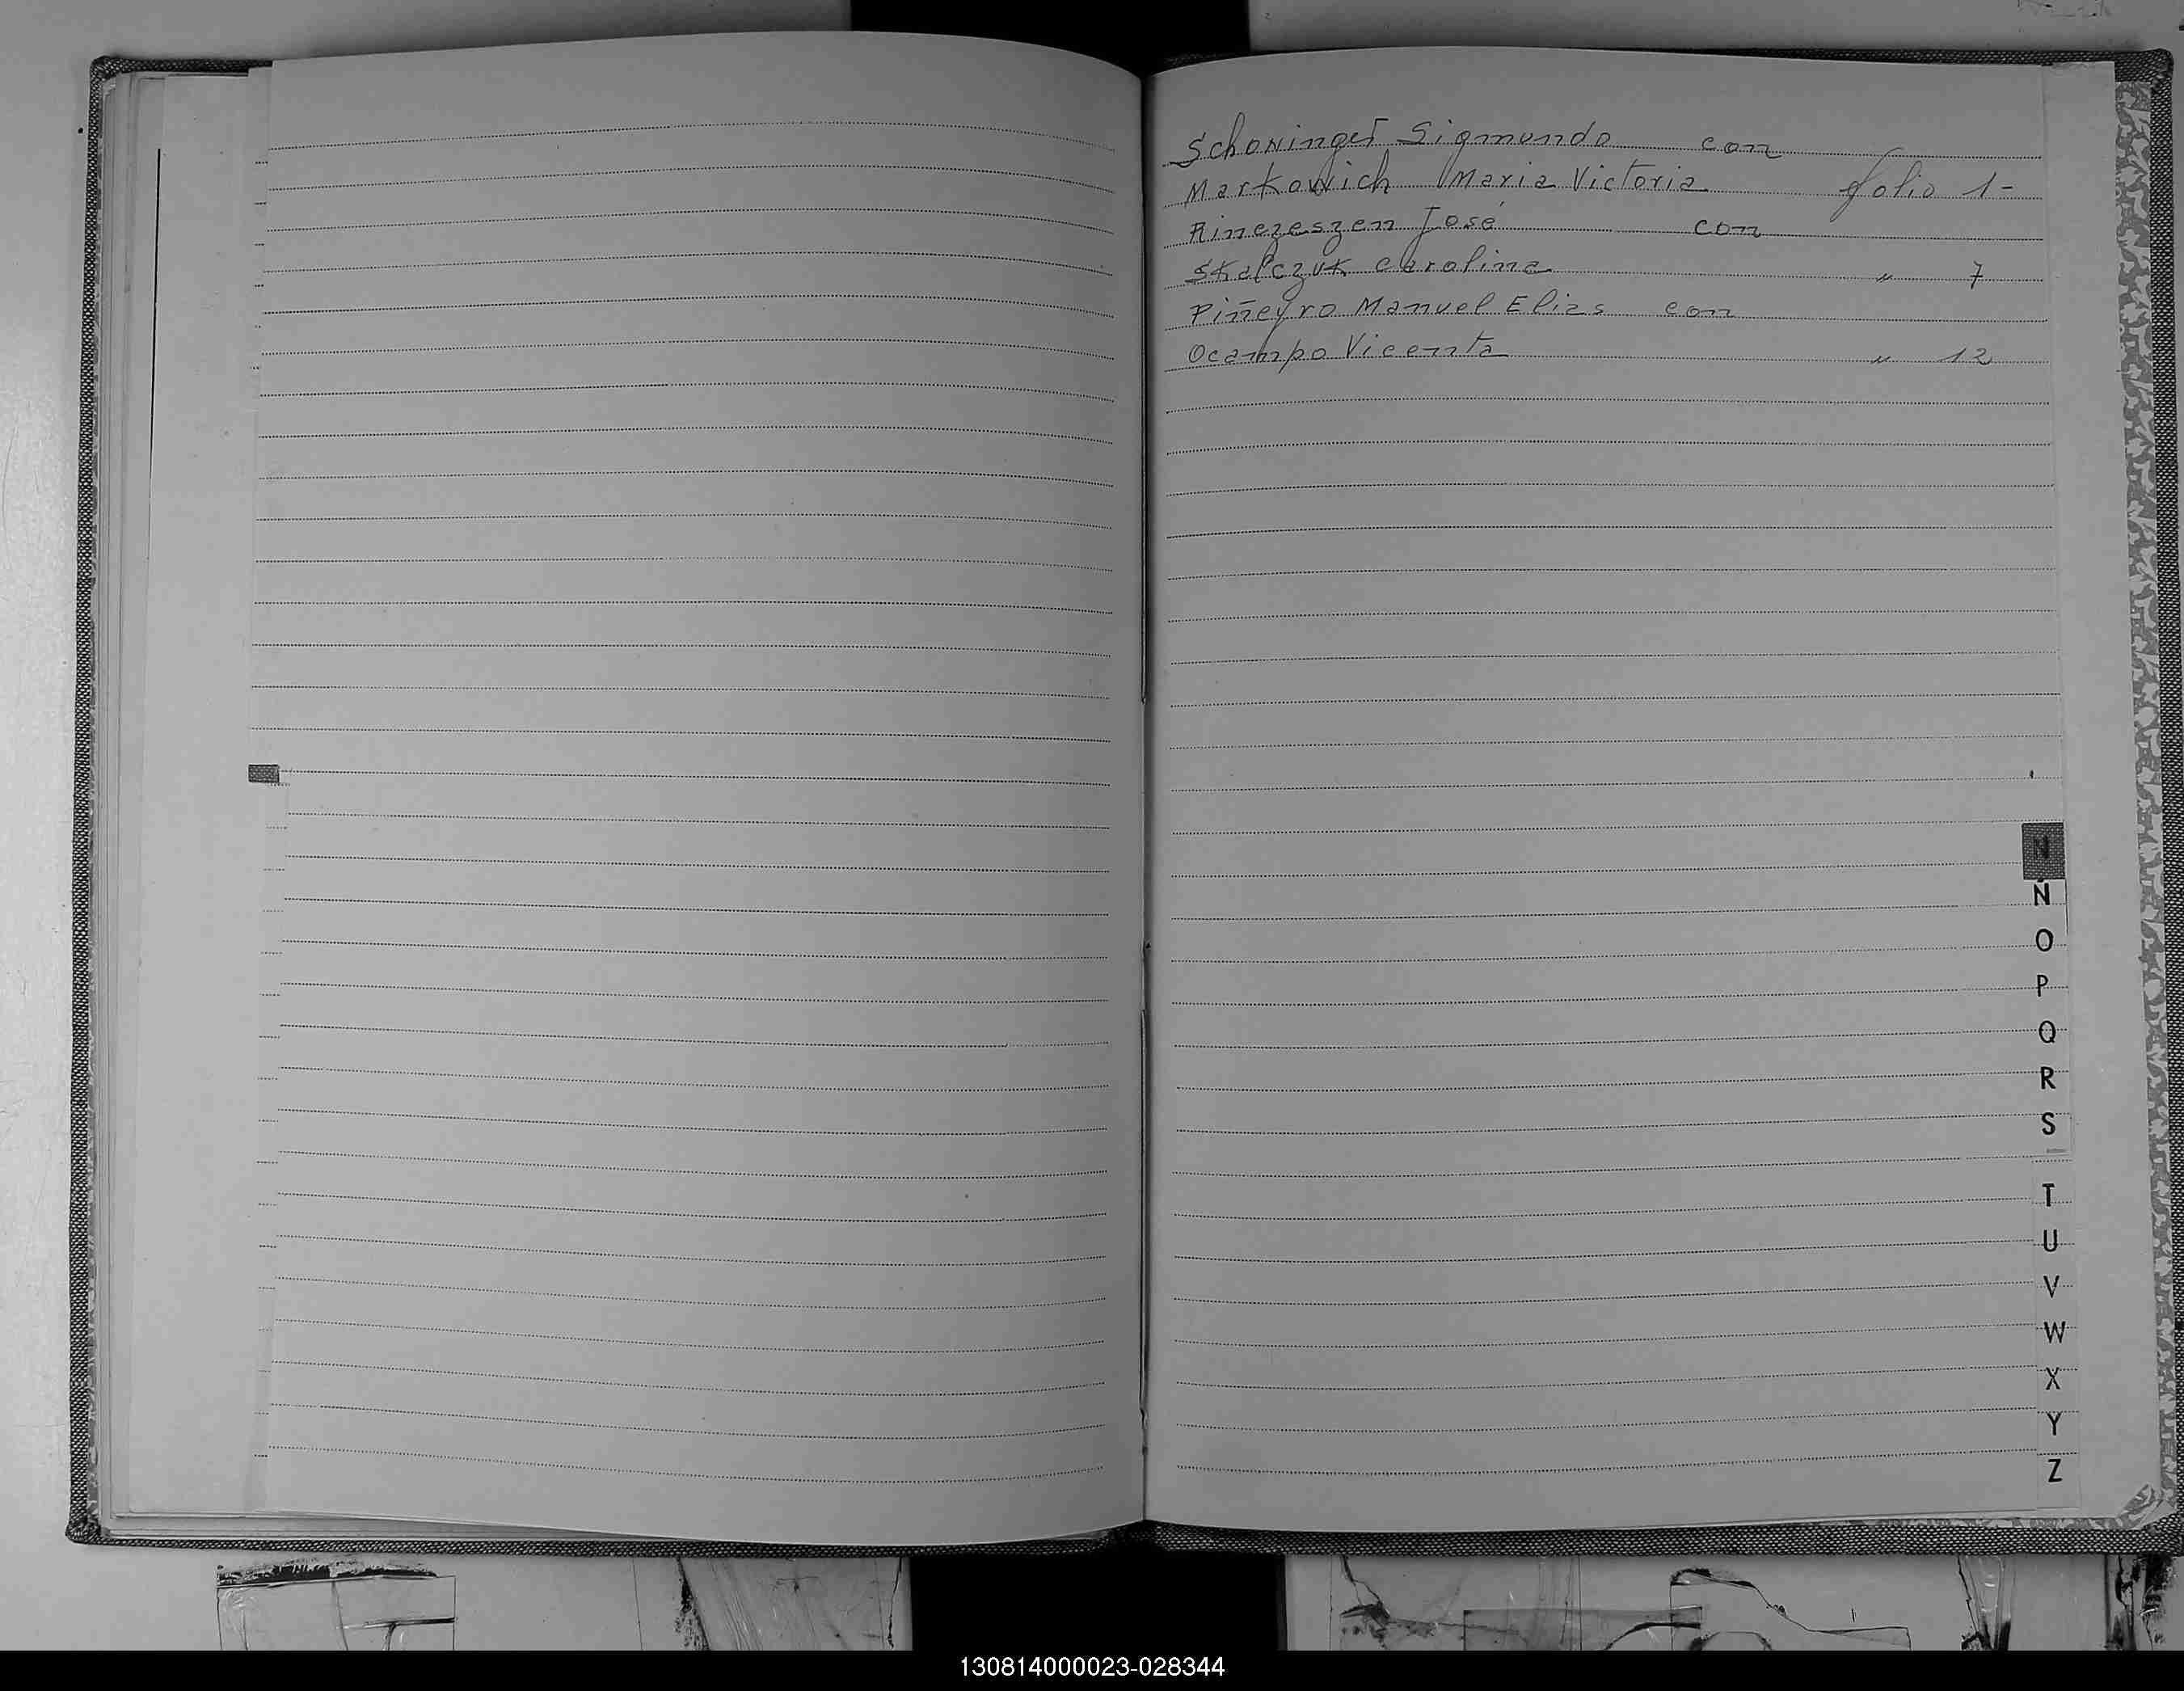 Schoninger Sigmundo con
Markowich Maria Victoria folio 1-
Rinezeszen José con
Skalczuk Carolina " 7
Piñeyro Manuel Elias con
Ocampo Vicenta " 12
N
Ñ
O
P
Q
R
S
T
U
V
W
X
Y
Z
130814000023-028344